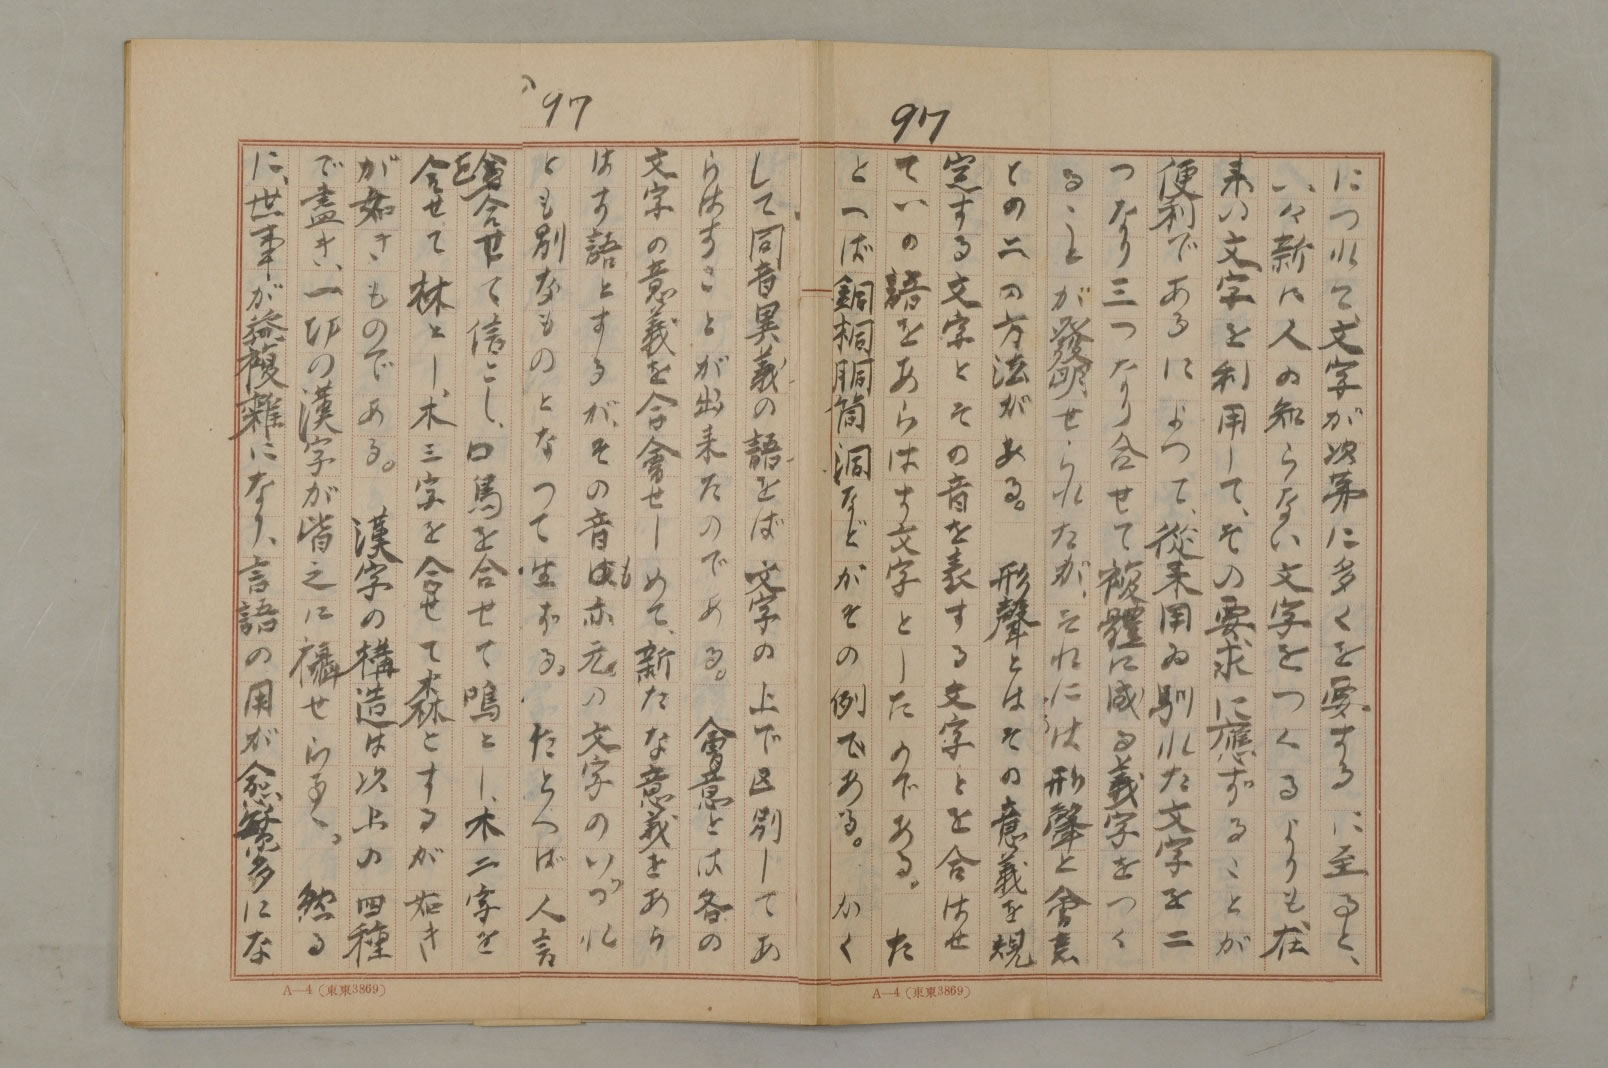 97
につれて、文字が次第に多くを要するに至ると、
一々新に人の知らない文字をつくるよりも、在
来の文字を利用して、その要求に應ずることが
便利であるによつて、從来用ゐ馴れた文字を二
つなり三つなり合せて複體に成る義字をつく
ることが發明せられたが、それには形聲と會意
との二の方法がある。形聲とはその意義を規
定する文字とその音を表する文字とを合はせ
ていの語をあらはす文字としたのである。た
とへば銅桐胴筒洞などがその例である。かく
97
して同音異義の語をば文字の上で区別してあ
らはすことが出来たのである。會意とは各の
文字の意義を合會せしめて、新たな意義をあら
はす語とするが、その音も亦元の文字のいづれ
とも別なものとなつて生ずる。たとへば人言
を會合せて信とし、口鳥を合せて鳴とし、木二字を
合せて林とし、木三字を合せて森とするが如き
が如きものである。漢字の構造は次上の四種
で盡き、一切の漢字が皆之に攝せらる。然る
に、世事が益複雜になり、言語の用が愈繁多にな
A—4（東東3869）
A—4（東東3869）